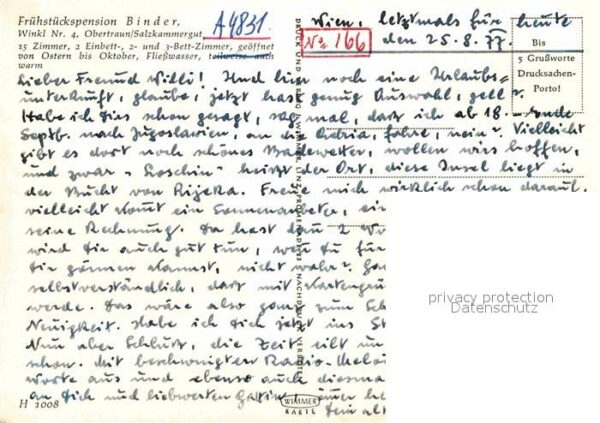 Frühstückspension Binder,
Winkl Nr. 4, Obertraun/Salzkammergut
15 Zimmer, 2 Einbett-, 2- und 3-Bett-Zimmer, geöffnet
von Ostern bis Oktober, Fließwasser, teilweise auch
warm
A 4831.
No 166
Wien, letztmals für heute
den 25.8.77.
Bis
5 Grußworte
Drucksachen-
Porto!
Lieber Freund Willi! Und hier noch eine Urlaubs=
unterkunft, glaube, jetzt hast genug Auswahl, gell?
Habe ich Dir schon gesagt, daß ich ab 18. – Ende
Septb. nach Jugoslawien, an die Adria, fahre, nein? Vielleicht
gibt es dort noch schönes Badewetter, wollen wirs hoffen,
und zwar "Loschin" heißt der Ort, diese Insel liegt in
der Bucht von Rijeka. Freue mich wirklich schon darauf,
vielleicht kommt ein Sonnenanbeter, ein
seine Rechnung. Da hast dau 2 Wo
wird Dir auch gut tun, wen Du für
Dir gönnen kannst, nicht wahr?
selbstverständlich, dort mit Kartengrü
werde. Das wäre also ganz zum Sch
Neuigkeit. Habe ich Dich jetzt ins St
Nun aber Schluß, die Zeit eilt un
schon. Mit beschwingten Radio-Melo
Worte aus und ebenso auch diesma
an Dich und liebwerten Gattin, immer he
Dein alt
H 1008
WIMMER
KARTE
DRUCK UND VERLAG J. WIMMER, LINZ, PROMENADE 23 NACHDRUCK VERBOTEN
privacy protection
Datenschutz